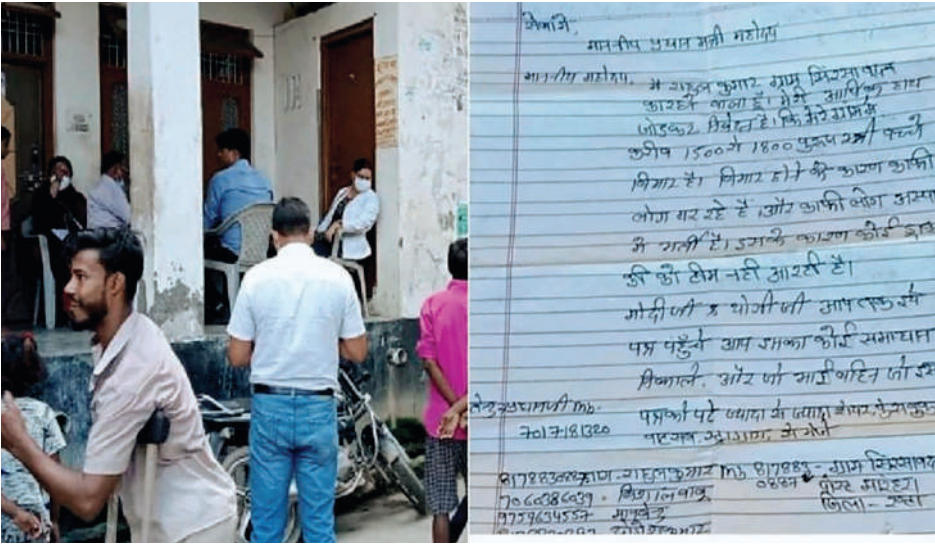 सेवामे,
माननीय प्रधान मंत्री महोदय
माननीय महोदय, मै राहुल कुमार ग्राम सिरसावाल
का रहने वाला हूँ। मेरी आपसे हाथ
जोडकर निवेदन है। कि मेरे ग्राम मे
करीब 1500 से 1800 पुरूष स्त्री बच्चे
बिमार है। बिमार होने के कारण काफी
लोग मर रहे है। और काफी लोग अस्पता
मे भर्ती है। इसके कारण कोई डाक
की टीम नही आरही है।
मोदी जी & योगी जी आप तक इसे
पत्र पहुँचे आप इसका कोई समाधान
निकाले. और जो भाई बहिन जो इस
पत्रको पढे ज्यादा से ज्यादा शेयर
प्रधानजी mb.
7017181320
राहुल कुमार mb 817883 - ग्राम सिरसा
0887 पोस्ट मारहरा
7060386039 - विशाल बाबू जिला - एटा
9759634557